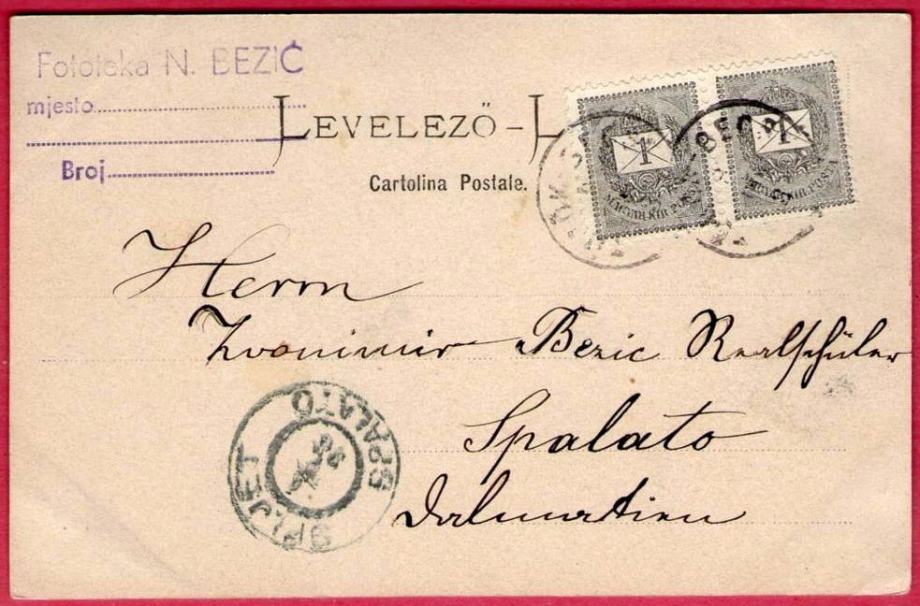 Fototeka N. BEZIĆ
mjesto
Broj
LEVELEZŐ-L
Cartolina Postale.
1
MAGYAR KIR. POSTA
1
MAGYAR KIR. POSTA
Herrn
Zvonimir Bezic Realschüler
Spalato
Dalmatien
SPALATO
SPLJET